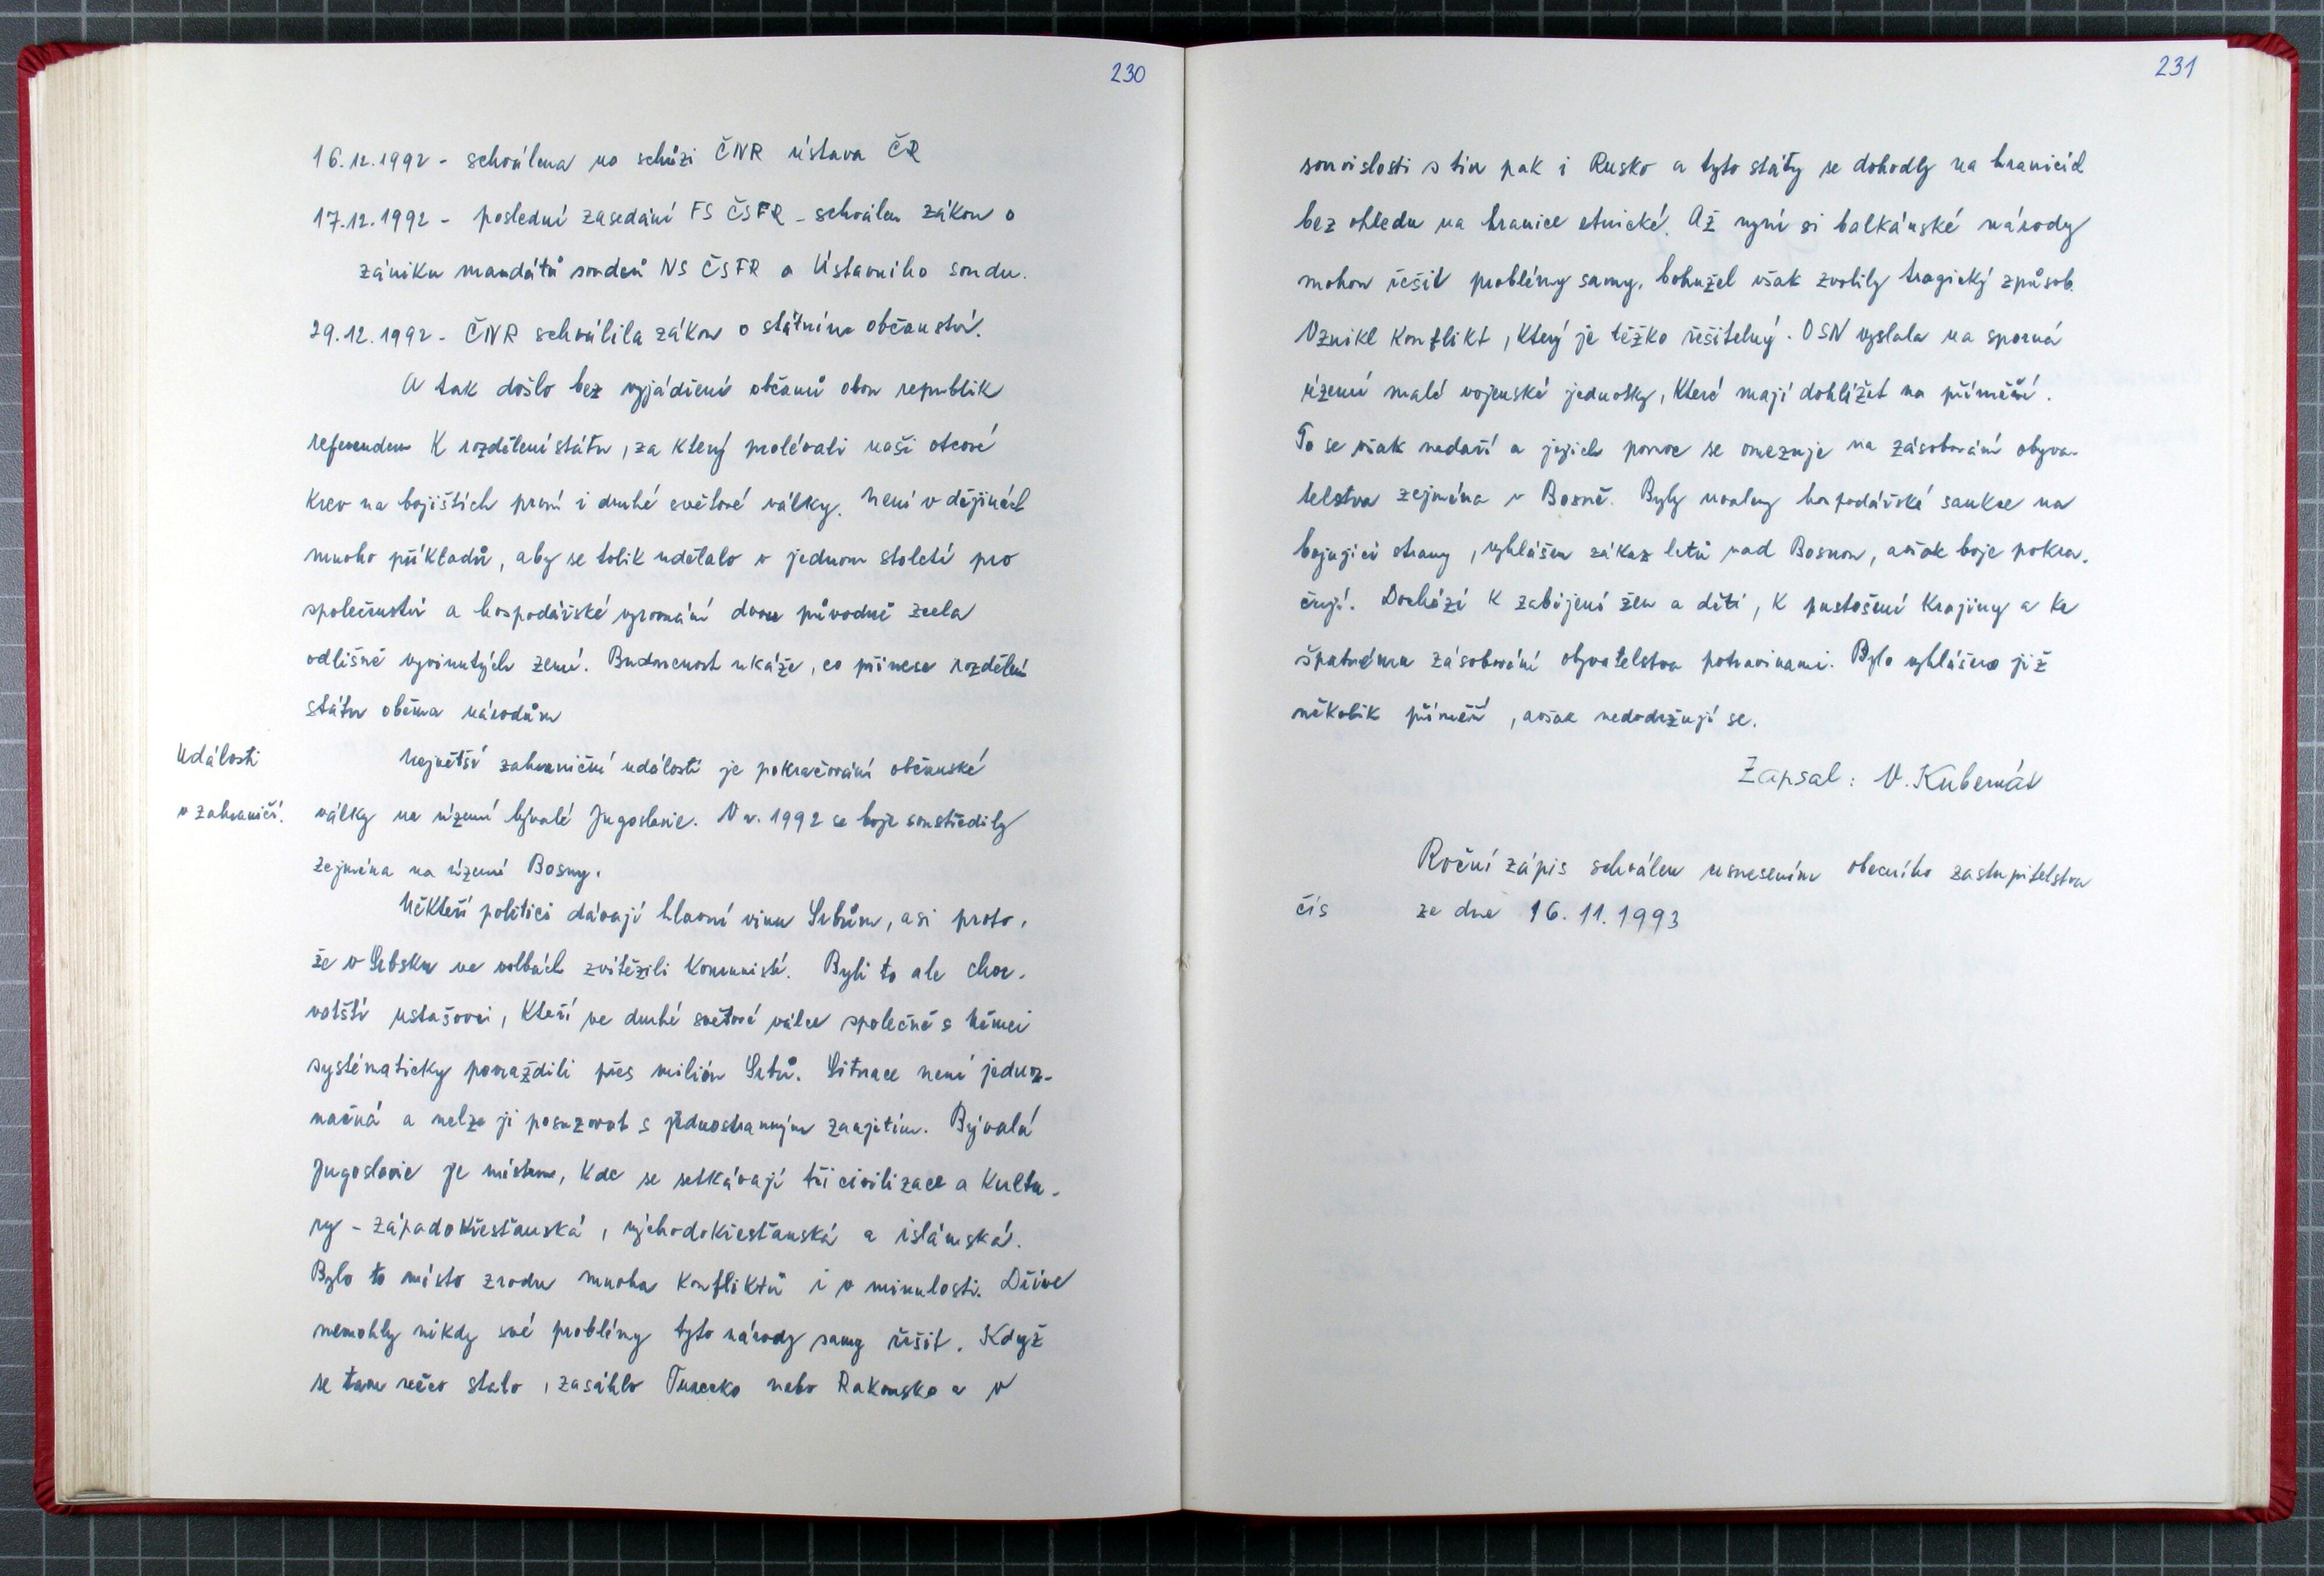 230
16.12.1992 - schválena na schůzi ČNR ústava ČR
17.12.1992 - poslední zasedání FS ČSFR - schválen zákon o
zániku mandátů soudců NS ČSFR a Ústavního soudu.
29.12.1992 - ČNR schválila zákon o státním občanství.
A tak došlo bez vyjádření občanů obou republik
referendem k rozdělení státu, za který prolévali naši otcové
krev na bojištích první i druhé světové války. Není v dějinách
mnoho příkladů, aby se tolik udělalo v jednom století pro
společenství a hospodářské vyrovnání dvou původně zcela
odlišně vyvinutých zemí. Budoucnost ukáže, co přinese rozdělení
státu oběma národům
Události
v zahraničí.
Největší zahraniční událostí je pokračování občanské
války na území bývalé Jugoslavie. V r. 1992 se boje soustředily
zejména na území Bosny.
Někteří politici dávají hlavní vinu Srbům, asi proto,
že v Srbsku ve volbách zvítězili komunisté. Byli to ale chor-
vatští ustašovci, kteří ve druhé světové válce společně s Němci
systématicky povraždili přes milión Srbů. Situace není jednoz-
načná a nelze ji posuzovat s jednostranným zaujetím. Bývalá
Jugoslavie je místem, kde se setkávají tři civilizace a kultu-
ry - západokřesťanská, východokřesťanská a islámská.
Bylo to místo zrodu mnoha konfliktů i v minulosti. Dříve
nemohly nikdy své problémy tyto národy samy řešit. Když
se tam něco stalo, zasáhlo Turecko nebo Rakousko a v
231
souvislosti s tím pak i Rusko a tyto státy se dohodly na hranicích
bez ohledu na hranice etnické. Až nyní si balkánské národy
mohou řešit problémy samy, bohužel však zvolily tragický způsob.
Vznikl konflikt, který je těžko řešitelný. OSN vyslala na sporná
území malé vojenské jednotky, které mají dohlížet na příměří.
To se však nedaří a jejich pomoc se omezuje na zásobování obyva-
telstva zejména v Bosně. Byly uvaleny hospodářské sankce na
bojující strany, vyhlášen zákaz letů nad Bosnou, avšak boje pokra-
čují. Dochází k zabíjení žen a dětí, k pustošení krajiny a ke
špatnému zásobování obyvatelstva potravinami. Bylo vyhlášeno již
několik příměří, avšak nedodržují se.
Zapsal: V. Kubernát
Roční zápis schválen usnesením obecního zastupitelstva
čís ze dne 16. 11. 1993